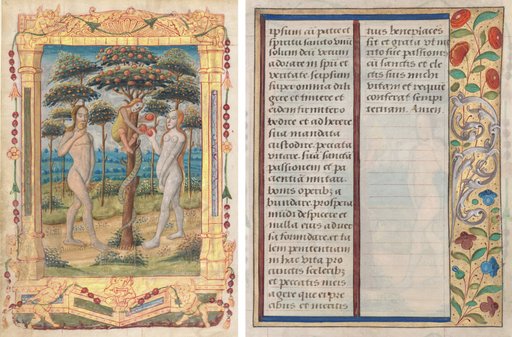 ipsum cū patre et
spiritu sancto vnū
solum deū verum
adorare in spū et
veritate te ipsum
super omnia dili
gere et timere et
eidem firmiter
bedire et adherere
sua mandata
custodire. peccata
vitare. suā sanctā
passionem et pa
cientiā imitari.
bonis operibꝫ a
bundare. prospera
mūdi despicere et
nulla eius aduer
sa formidare. et ta
lem penitentiam
in hac vita pro
cunctis sceleribꝫ
et peccatis meis
agere que et pre
cibus et meritis
tuis beneplaces
sit et grata vt me
rito sue passionis
cū sanctis et ele
ctis suis michi
vitam et requiē
conferat sempi
ternam. Amen.